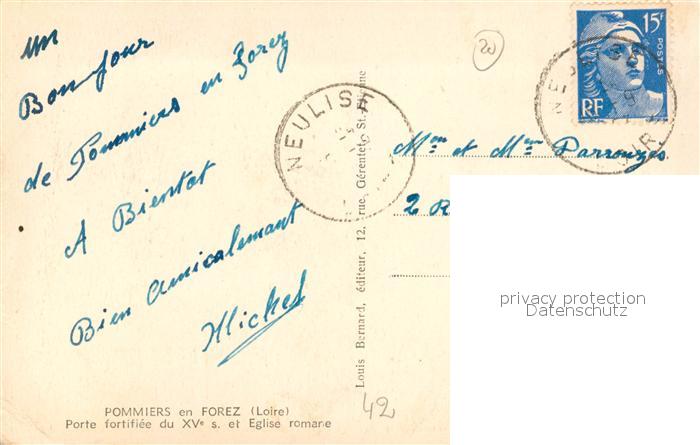 un
Bonjour
de Pommiers en Forez
A Bientot
Bien Amicalemant
Michel
POMMIERS en FOREZ (Loire)
Porte fortifiée du XVe s. et Eglise romane
Louis Bernard, éditeur, 12, rue Gérentet, St.-Etienne
NEULISE
20
42
15F
POSTES
RF
NE
Mm et Mm Parrouzes
2 R
privacy protection
Datenschutz